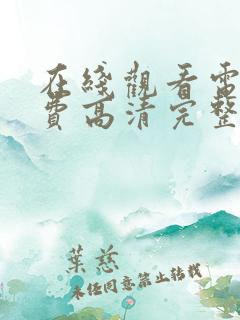 在綫觀看電
費高清完整
葉慈
未经同意禁止转载